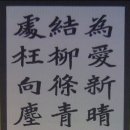 為愛新晴
結柳條青
處枉向塵